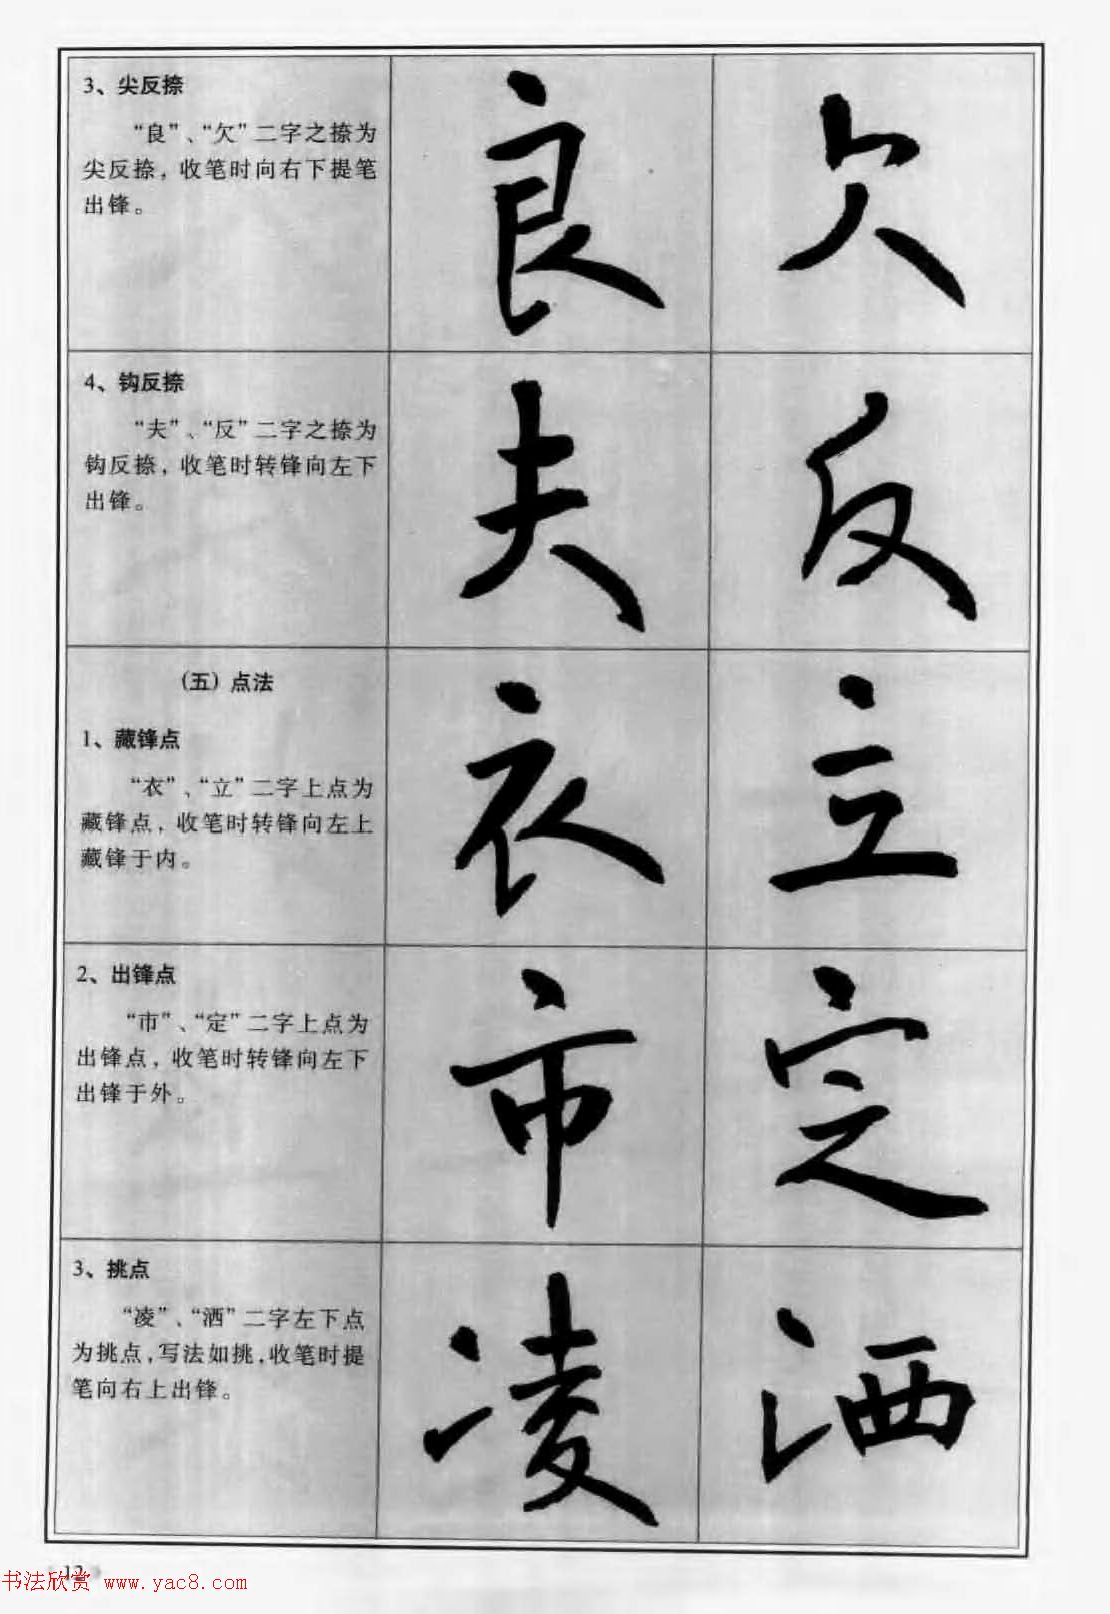 3、尖反捺
“良”、“欠”二字之捺为
尖反捺，收笔时向右下提笔
出锋。
良
欠
4、钩反捺
“夫”、“反”二字之捺为
钩反捺，收笔时转锋向左下
出锋。
夫
反
（五）点法
1、藏锋点
“衣”、“立”二字上点为
藏锋点，收笔时转锋向左上
藏锋于内。
衣
立
2、出锋点
“市”、“定”二字上点为
出锋点，收笔时转锋向左下
出锋于外。
市
定
3、挑点
“凌”、“洒”二字左下点
为挑点，写法如挑，收笔时提
笔向右上出锋。
凌
洒
12
书法欣赏 www.yac8.com